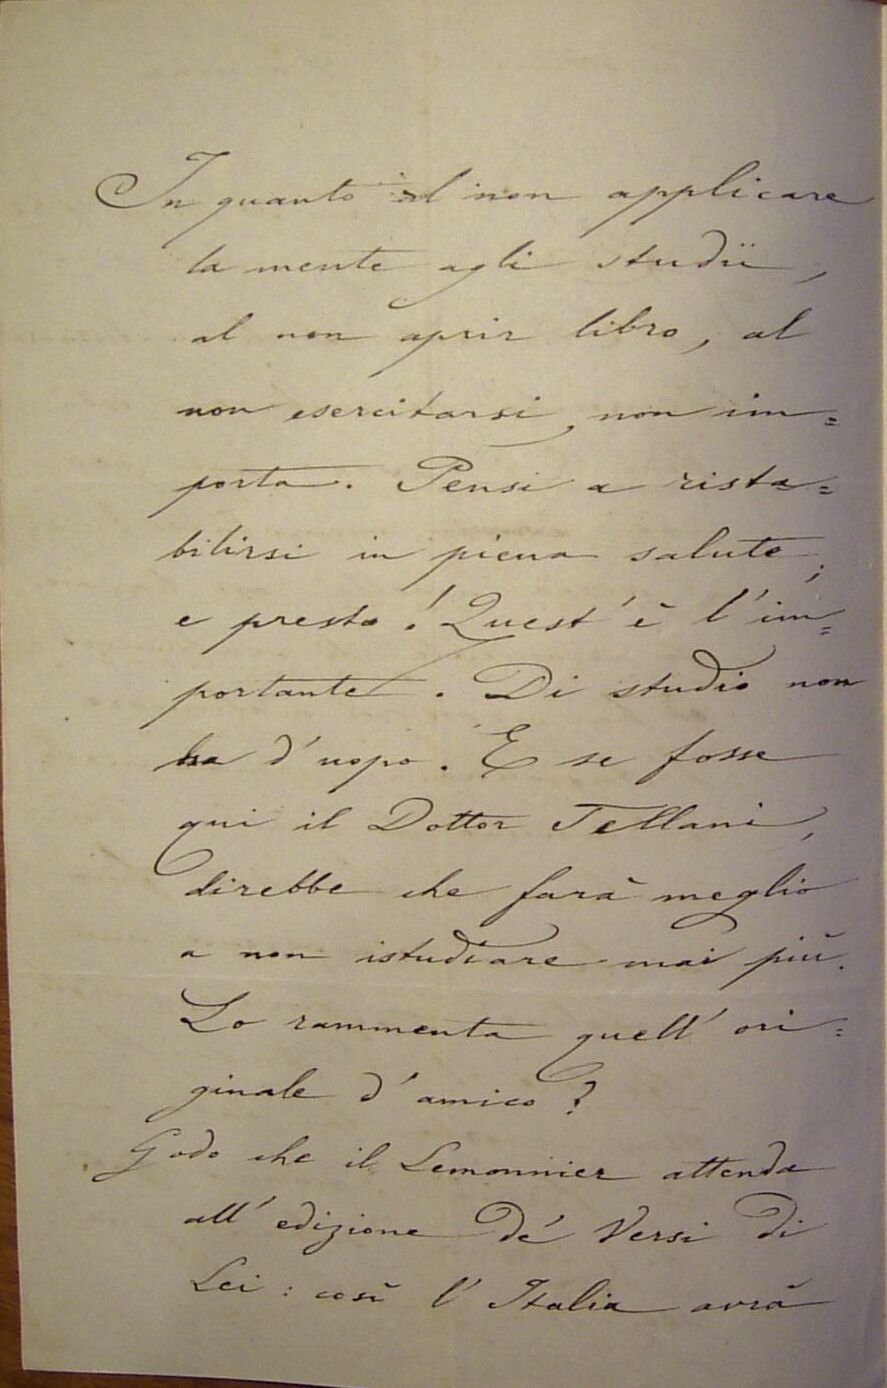 In quanto al non applicare
la mente agli studii,
al non aprir libro, al
non esercitarsi, non im=
porta. Pensi a rista=
bilirsi in piena salute;
e presto! Quest'è l'im=
portante. Di studio non
ha d'uopo. E se fosse
qui il Dottor Tellani,
direbbe che farà meglio
a non istudiare mai più.
Lo rammenta quell' ori=
ginale d'amico?
Godo che il Lemonnier attenda
all' edizione de' Versi di
Lei: così l'Italia avrà